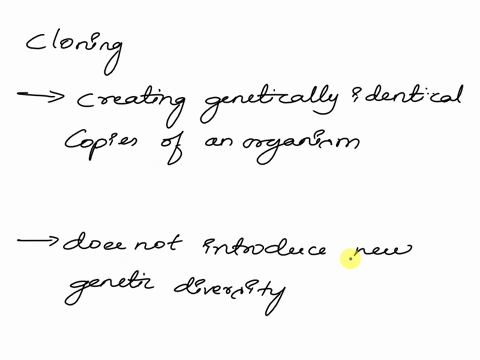 Cloning
→ creating genetically identical
Copies of an organism
→ does not introduce new
genetic diversity